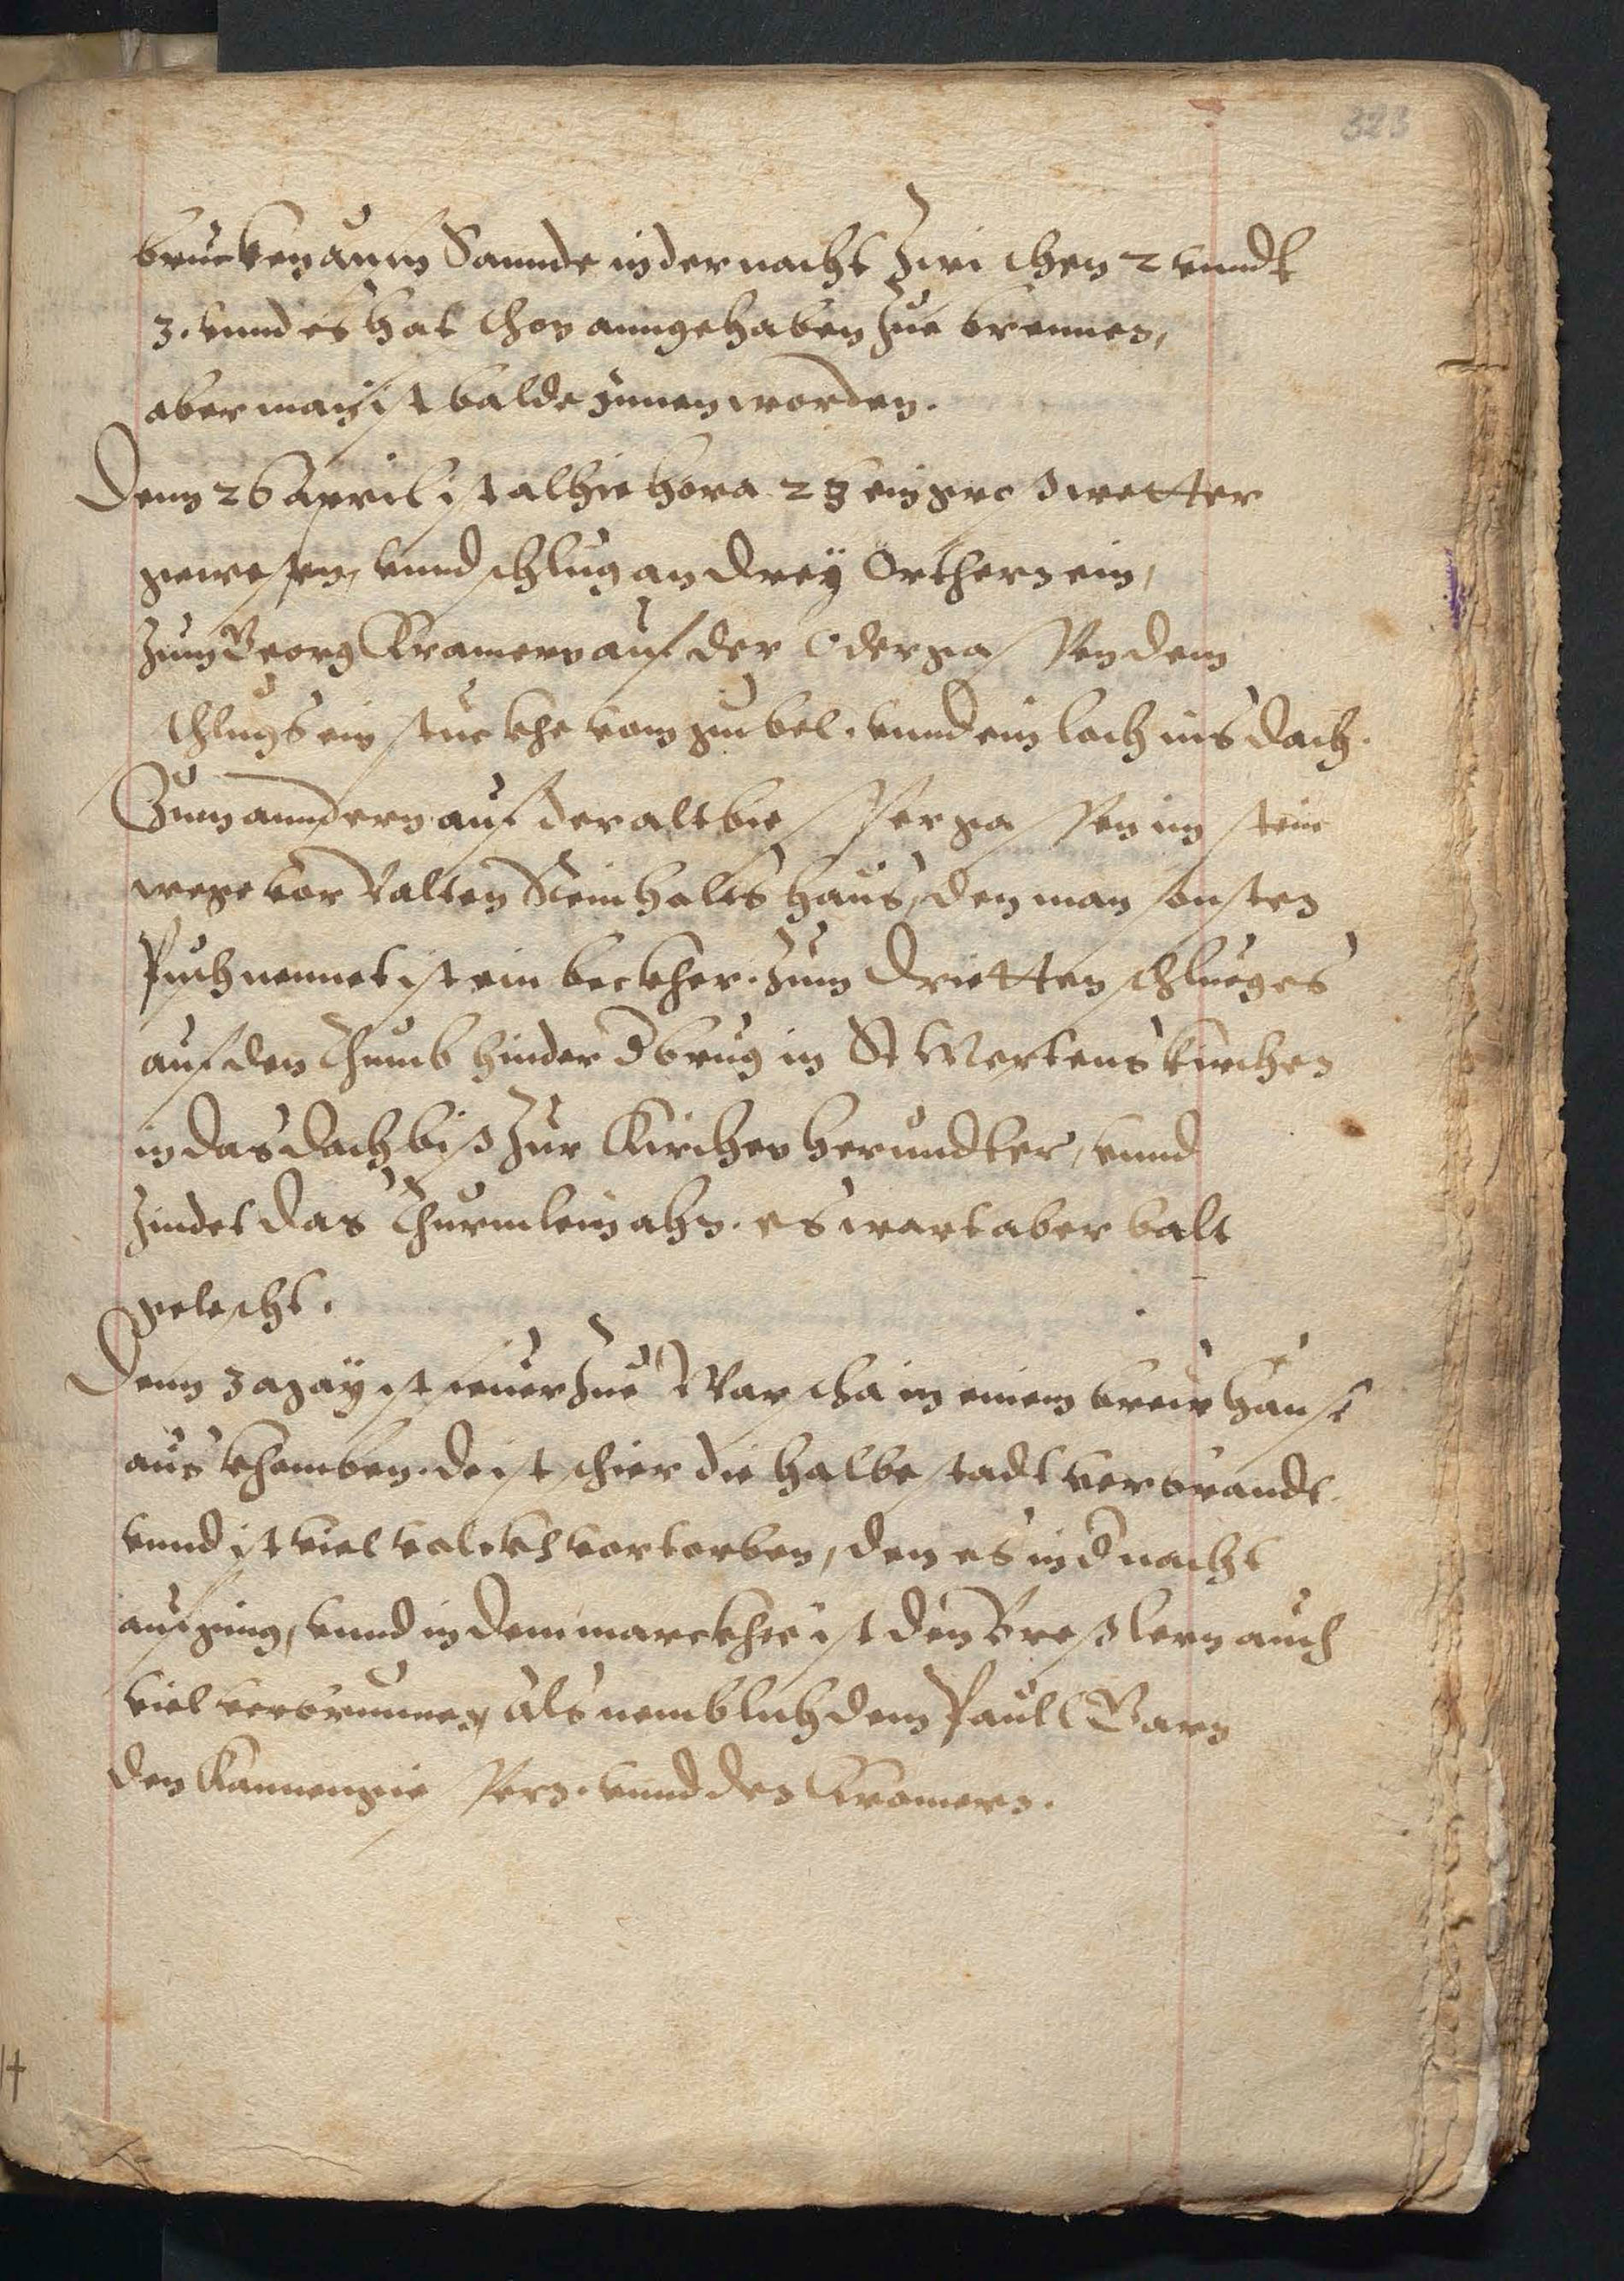 323
brucken aum Sannde in der nacht Zwischen 2 vnndt
3. vnnd es hat schon anngehaben Zue brennen,
aber man ist balde ynnen worden.
Denn 26 April ist alhie hora 23 ein gros wetter
gewesen, vnnd schlug an dreÿ Orthern ein,
Zum Georg Kramern auf der Odergassen dem
schlugs ein stuckhe vom giebel. vnnd ein loch ins dach.
Zum anndern auf der altbiessergassen im stein
wege vor Valten Steinholts haus, den man sonsten
Puschnennet ist ein beckher. Zum dritten schlueg es
auf den Thumb hinder d burg in St Mertens kirchen
in das dach biß Zur Kirchen herundter, vnnd
Zindet das Thurmlein ahn. es wart aber balt
gelescht.
Denn 3 Maÿ ist feuer Zue Warscha in einem breuhause
aus khomben. do ist schier die halbe stadt verbrandt.
vnnd ist viel volckh vortorben, den es in d nacht
aufging, vnnd in dem marckhte ist den Breßlern auch
viel verbrunnen, als nemblich dem Paull Garn
den Kannengiessern. vnnd den Cromern.